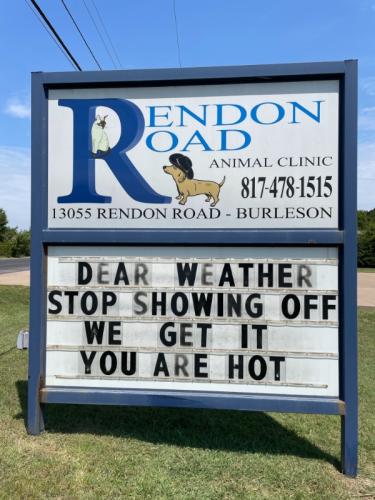 RENDON
ROAD
ANIMAL CLINIC
817-478-1515
13055 RENDON ROAD - BURLESON
DEAR WEATHER
STOP SHOWING OFF
WE GET IT
YOU ARE HOT